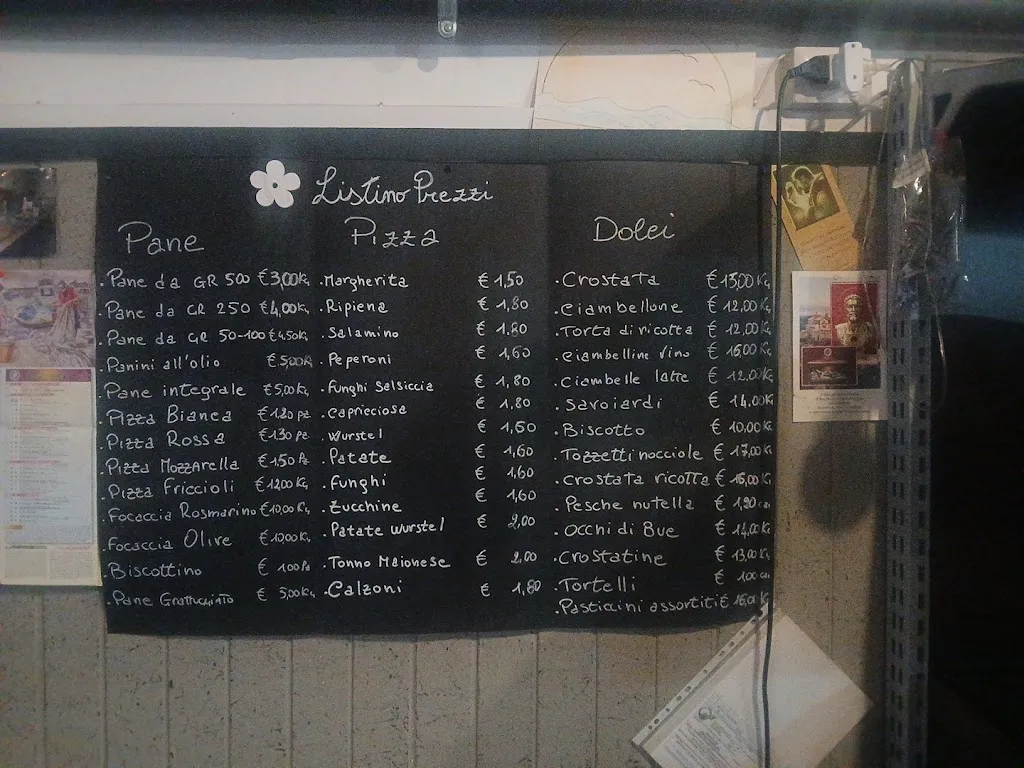 Listino Prezzi
Pane
.Pane da GR 500 €3,00Kg
.Pane da GR 250 €4,00Kg
.Pane da GR 50-100 €4,50Kg
.Panini all'olio €5,00Kg
.Pane integrale €5,00Kg
.Pizza Bianca €1,20 pz
.Pizza Rossa €1,30 pz
.Pizza Mozzarella €1,50 Pz
.Pizza Friccioli €12,00Kg
.Focaccia Rosmarino €10,00Kg
.Focaccia Olive €10,00Kg
.Biscottino € 1,00 Pz
.Pane Grattugiato € 5,00Kg
Pizza
.Margherita € 1,50
.Ripiena € 1,80
.Salamino € 1,80
.Peperoni € 1,60
.Funghi Salsiccia € 1,80
.Capricciosa € 1,80
.Wurstel € 1,60
.Patate € 1,60
.Funghi € 1,60
.Zucchine € 1,60
.Patate Wurstel € 2,00
.Tonno Maionese € 2,00
.Calzoni € 1,80
Dolci
.Crostata €13,00 Kg
.Ciambellone € 12,00 Kg
.Torta di ricotta € 12,00 Kg
.Ciambelline Vino € 16,00 Kg
.Ciambelle latte € 12,00 Kg
.Savoiardi € 14,00Kg
.Biscotto € 10,00 Kg
.Tozzetti nocciole € 17,00Kg
.Crostata ricotta € 16,00 Kg
.Pesche nutella € 1,20
.Occhi di Bue € 14,00 Kg
.Crostatine € 13,00 Kg
.Tortelli € 1,00
.Pasticini assortiti €